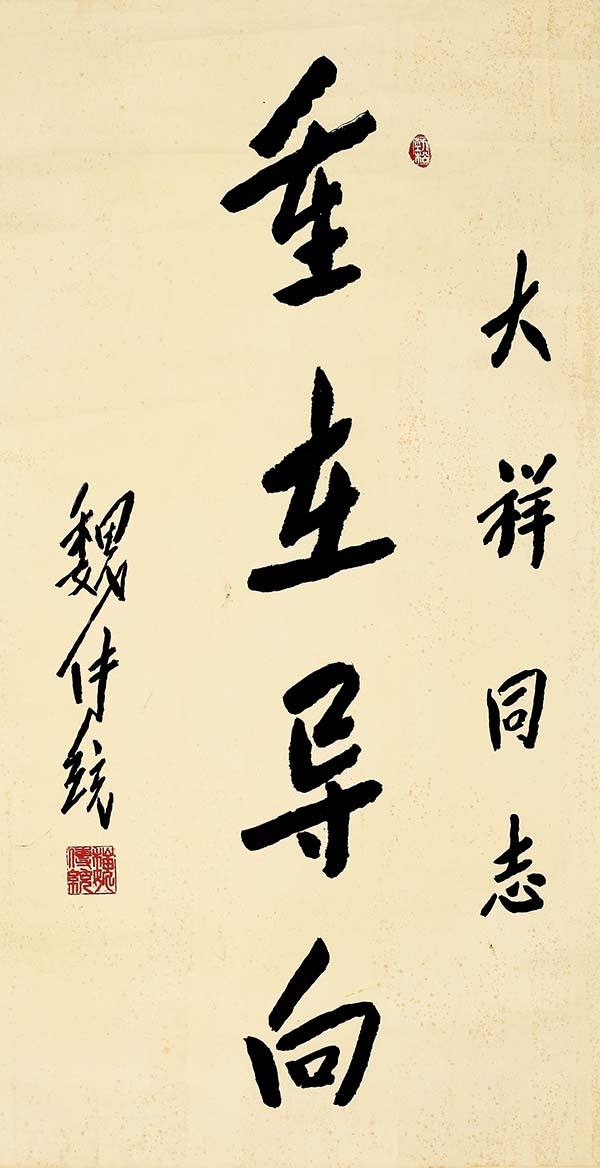 大祥同志
重在导向
魏传统